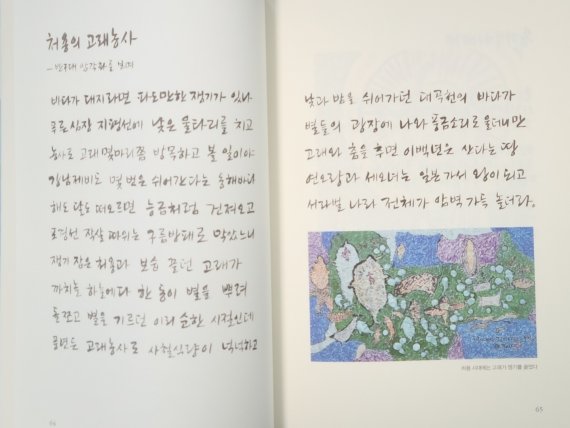 처용의 고래농사
— 반구대 암각화를 보며
바다가 대지라면 파도만한 쟁기가 있나
푸른 심장 지평선에 낮은 울타리를 치고
농사로 고래 몇마리쯤 방목하고 볼 일이야
강남제비도 몇 번은 쉬어간다는 동해바다
해도 달도 떠오르면 능금처럼 건져오고
포경선 작살 따위는 구름반대로 막았느니
쟁기 잡은 처용과 보습 끌던 고래가
까치놀 하늘에다 한 동이 별을 뿌려
돌쪼고 별을 기르던 이리 순한 시절인데
물면든 고래농사로 사철식량이 넉넉하고
64
낮과 밤을 쉬어가던 대곡천의 바다가
별들의 광장에 나와 풍금소리로 울더니만
고래와 춤을 추면 이백년은 산다는 땅
연오랑과 세오녀는 일본가서 왕이 되고
서라벌 나라 전체가 암벽 가득 놀더라.
처용 시대에는 고래가 쟁기를 끌었다
65